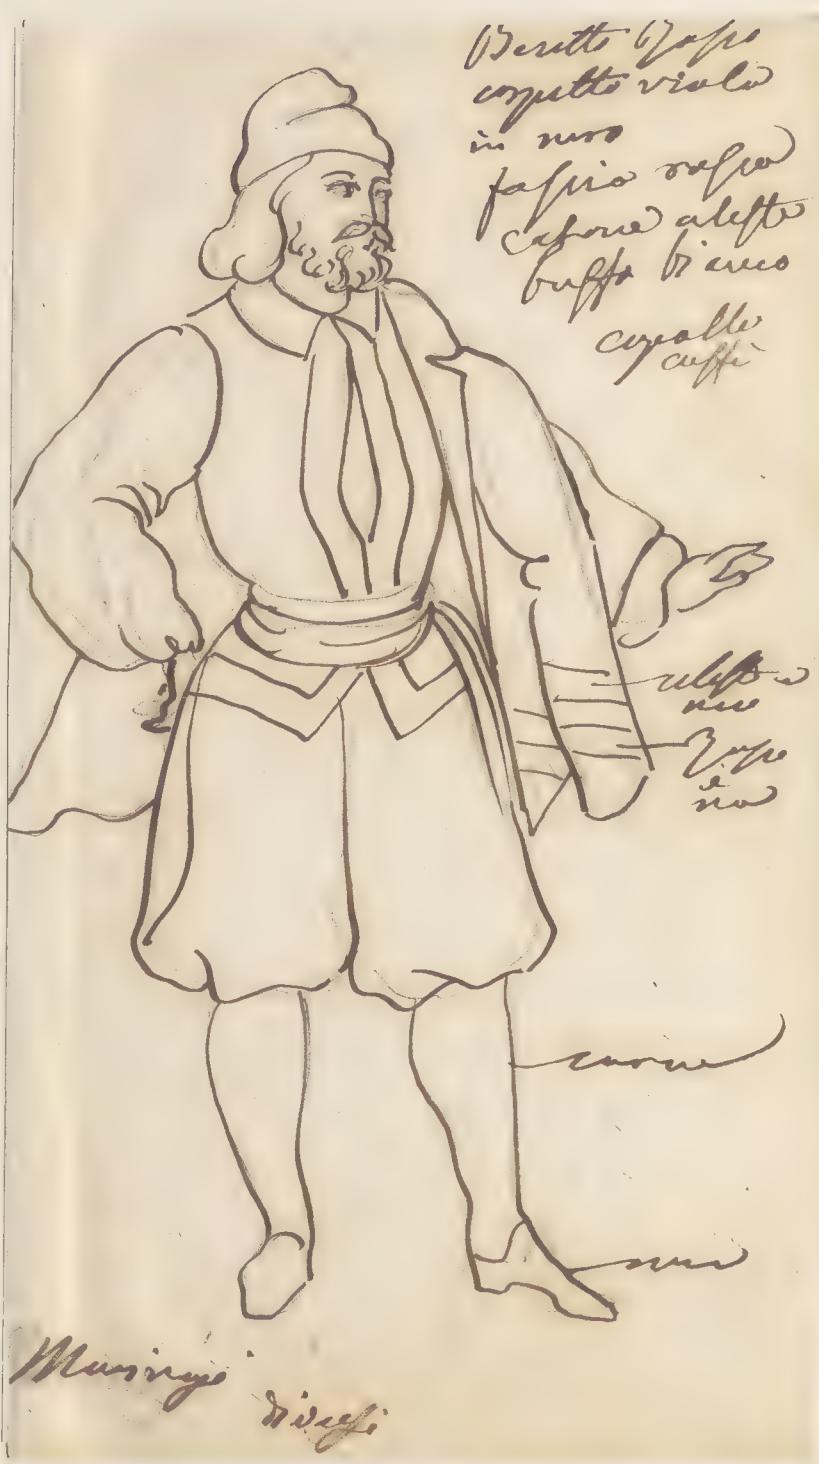 Beretto Rosso
corpetto viola
in nero
fascia rossa
calzone celeste
buffo bianco
capelli
caffè
celeste
nero
Rosso
e
nero
carne
nero
Marinaji
diversi